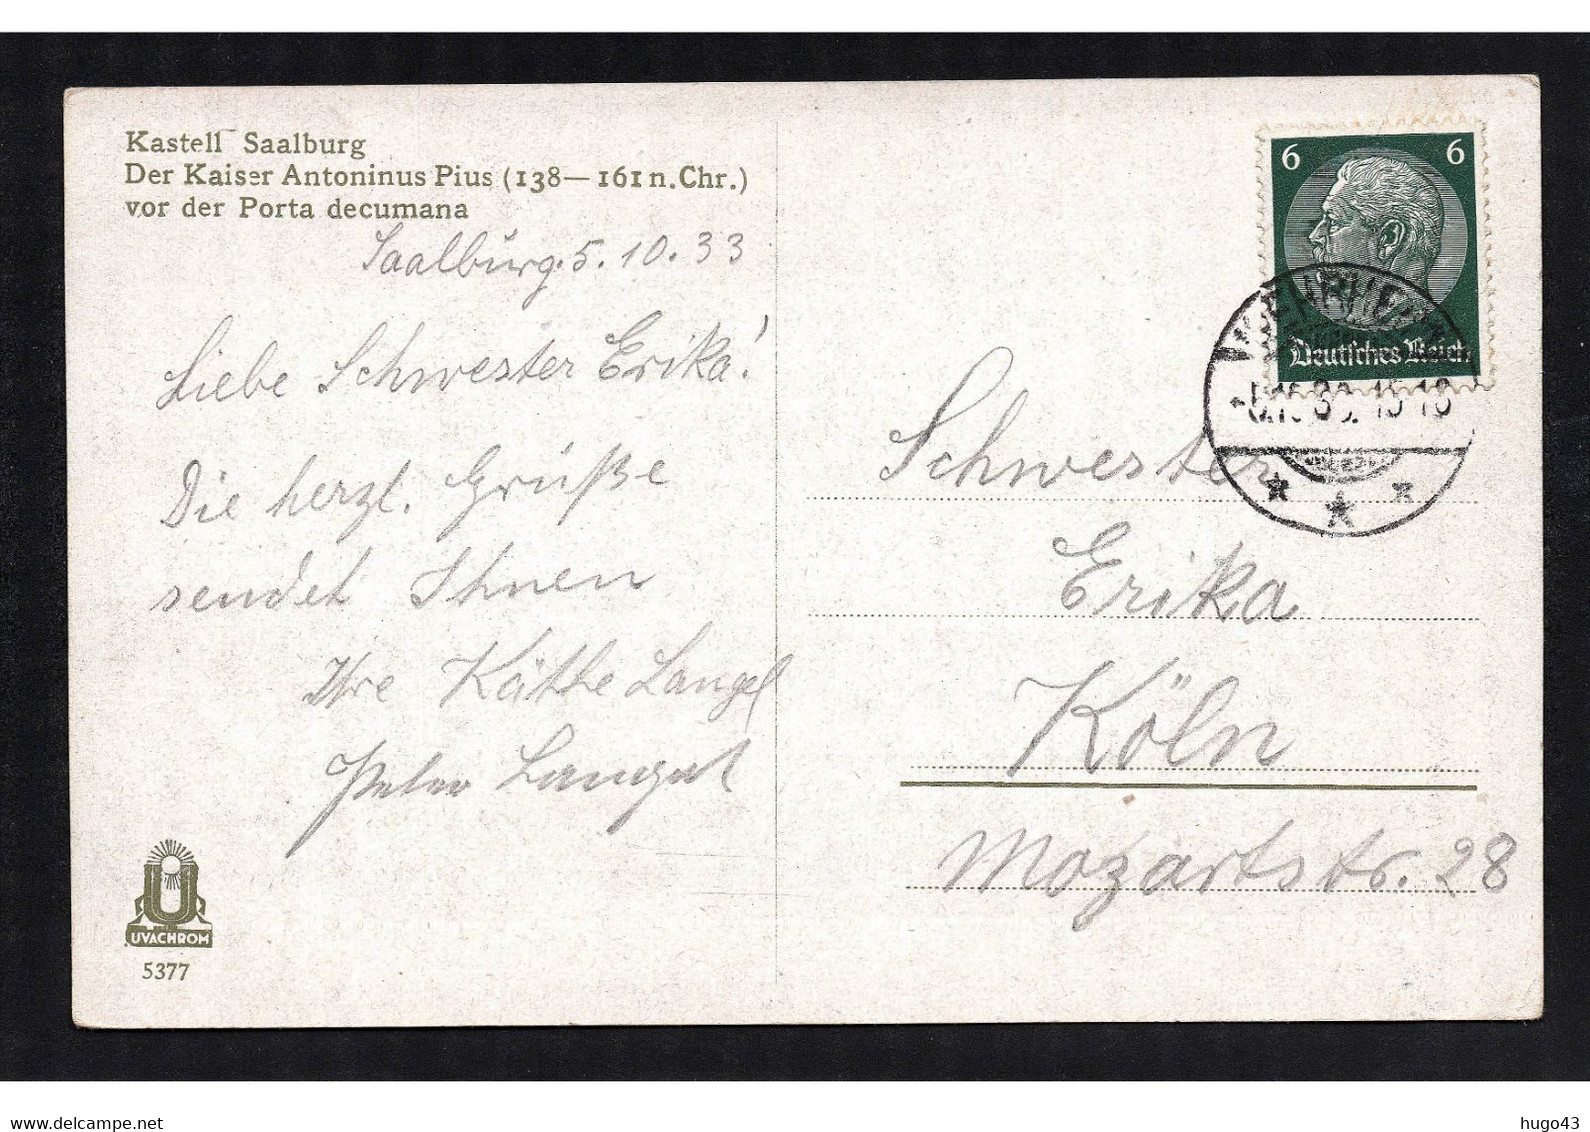 Kastell Saalburg
Der Kaiser Antoninus Pius (138—161 n. Chr.)
vor der Porta decumana
Saalburg. 5. 10. 33
Liebe Schwester Erika!
Die herzl. Grüße
sendet Ihnen
Ihre Käthe Langel
Peter
6 6
Deutsches Reich
Schwester
Erika
Köln
Mozartstr. 28
UVACHROM
5377
www.delcampe.net
hugo43